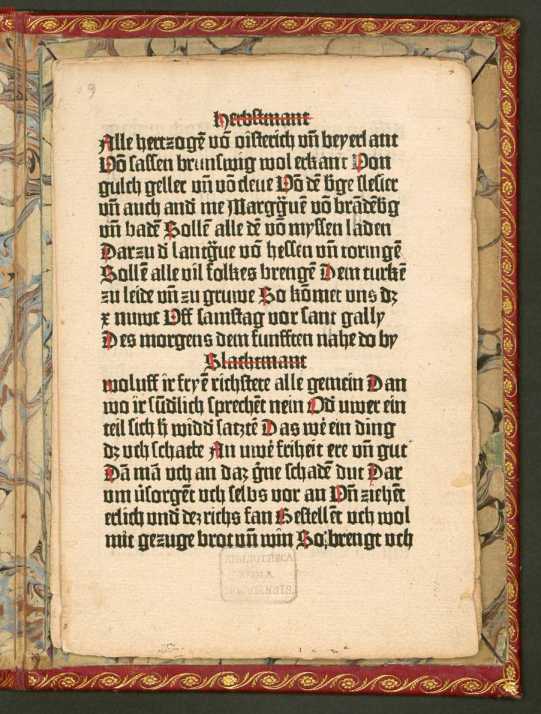 9
Herbstmant
Alle hertzogē vō oisterich vn̄ beyerl ant
Vō sassen brunswig wol erkant Von
gulch geller vn̄ vō cleue Vō dē b̾ge slesier
vn̄ auch and̾ me Marggͣuē vō brādēb̾g
vn̄ badē Sollē alle dē vō myssen laden
Darzu d̾ lantgͣue vō hessen vn̄ toringē
Sollē alle vil folkes brengē Dein turkē
zu leide vn̄ zu gruwe So kōmet vns dz
x nuwe Vff samstag vor sant gally
Des morgens dem funfften nahe do by
Slachtmant
woluff ir fryē richstete alle gemein Dan
wo ir sūd̾lich sprechēt nein Od̾ uwer ein
teil sich h̾ widd̾ satztē Das wē ein ding
dz vch schatte An uwē friheit ere vn̄ gut
Dā mā vch an daz gͣne schadē dut Dar
vm v̾sorgēt vch selbs vor an Vn̄ ziehēt
erlich vnd̾ dez richs fan Bestellēt vch wol
mit gezuge brot vn̄ win So brengt vch
BIBLIOTHECA
REGIA
MONACENSIS